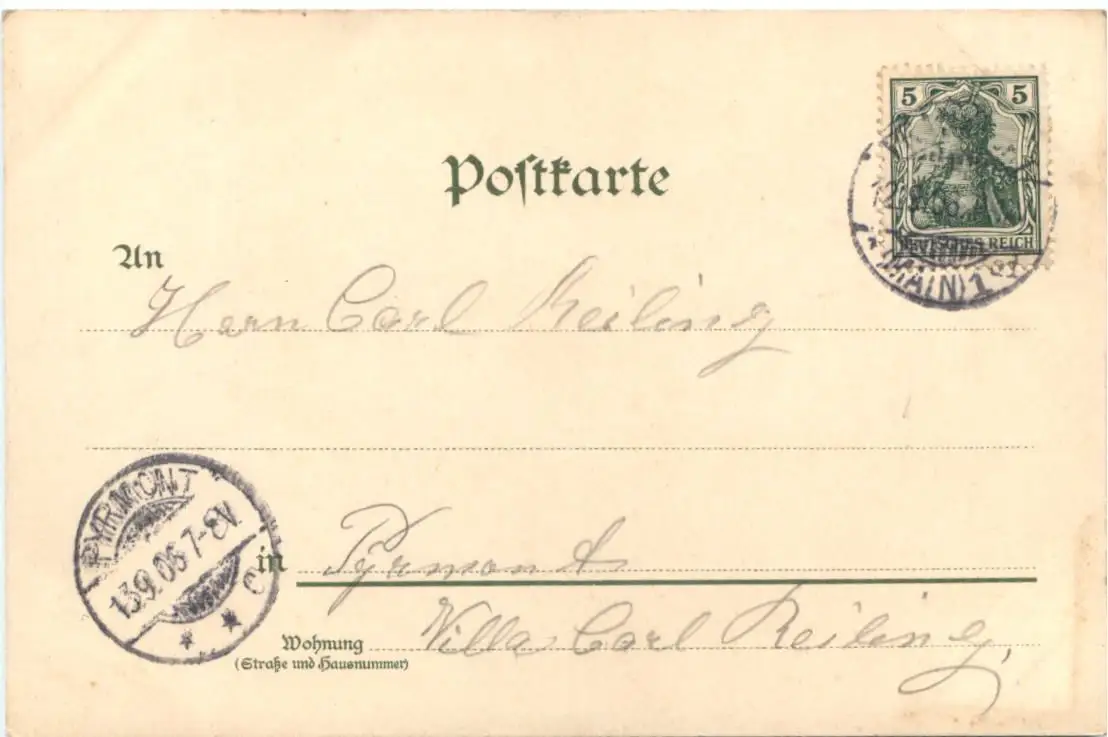 5 5
DEUTSCHES REICH
12.9.06.
(MAIN) 1
Postkarte
An
Herrn Carl Reiling
PYRMONT
13.9.06 7-8V.
C
* *
in Pyrmont
Wohnung Villa Carl Reiling,
(Straße und Hausnummer)